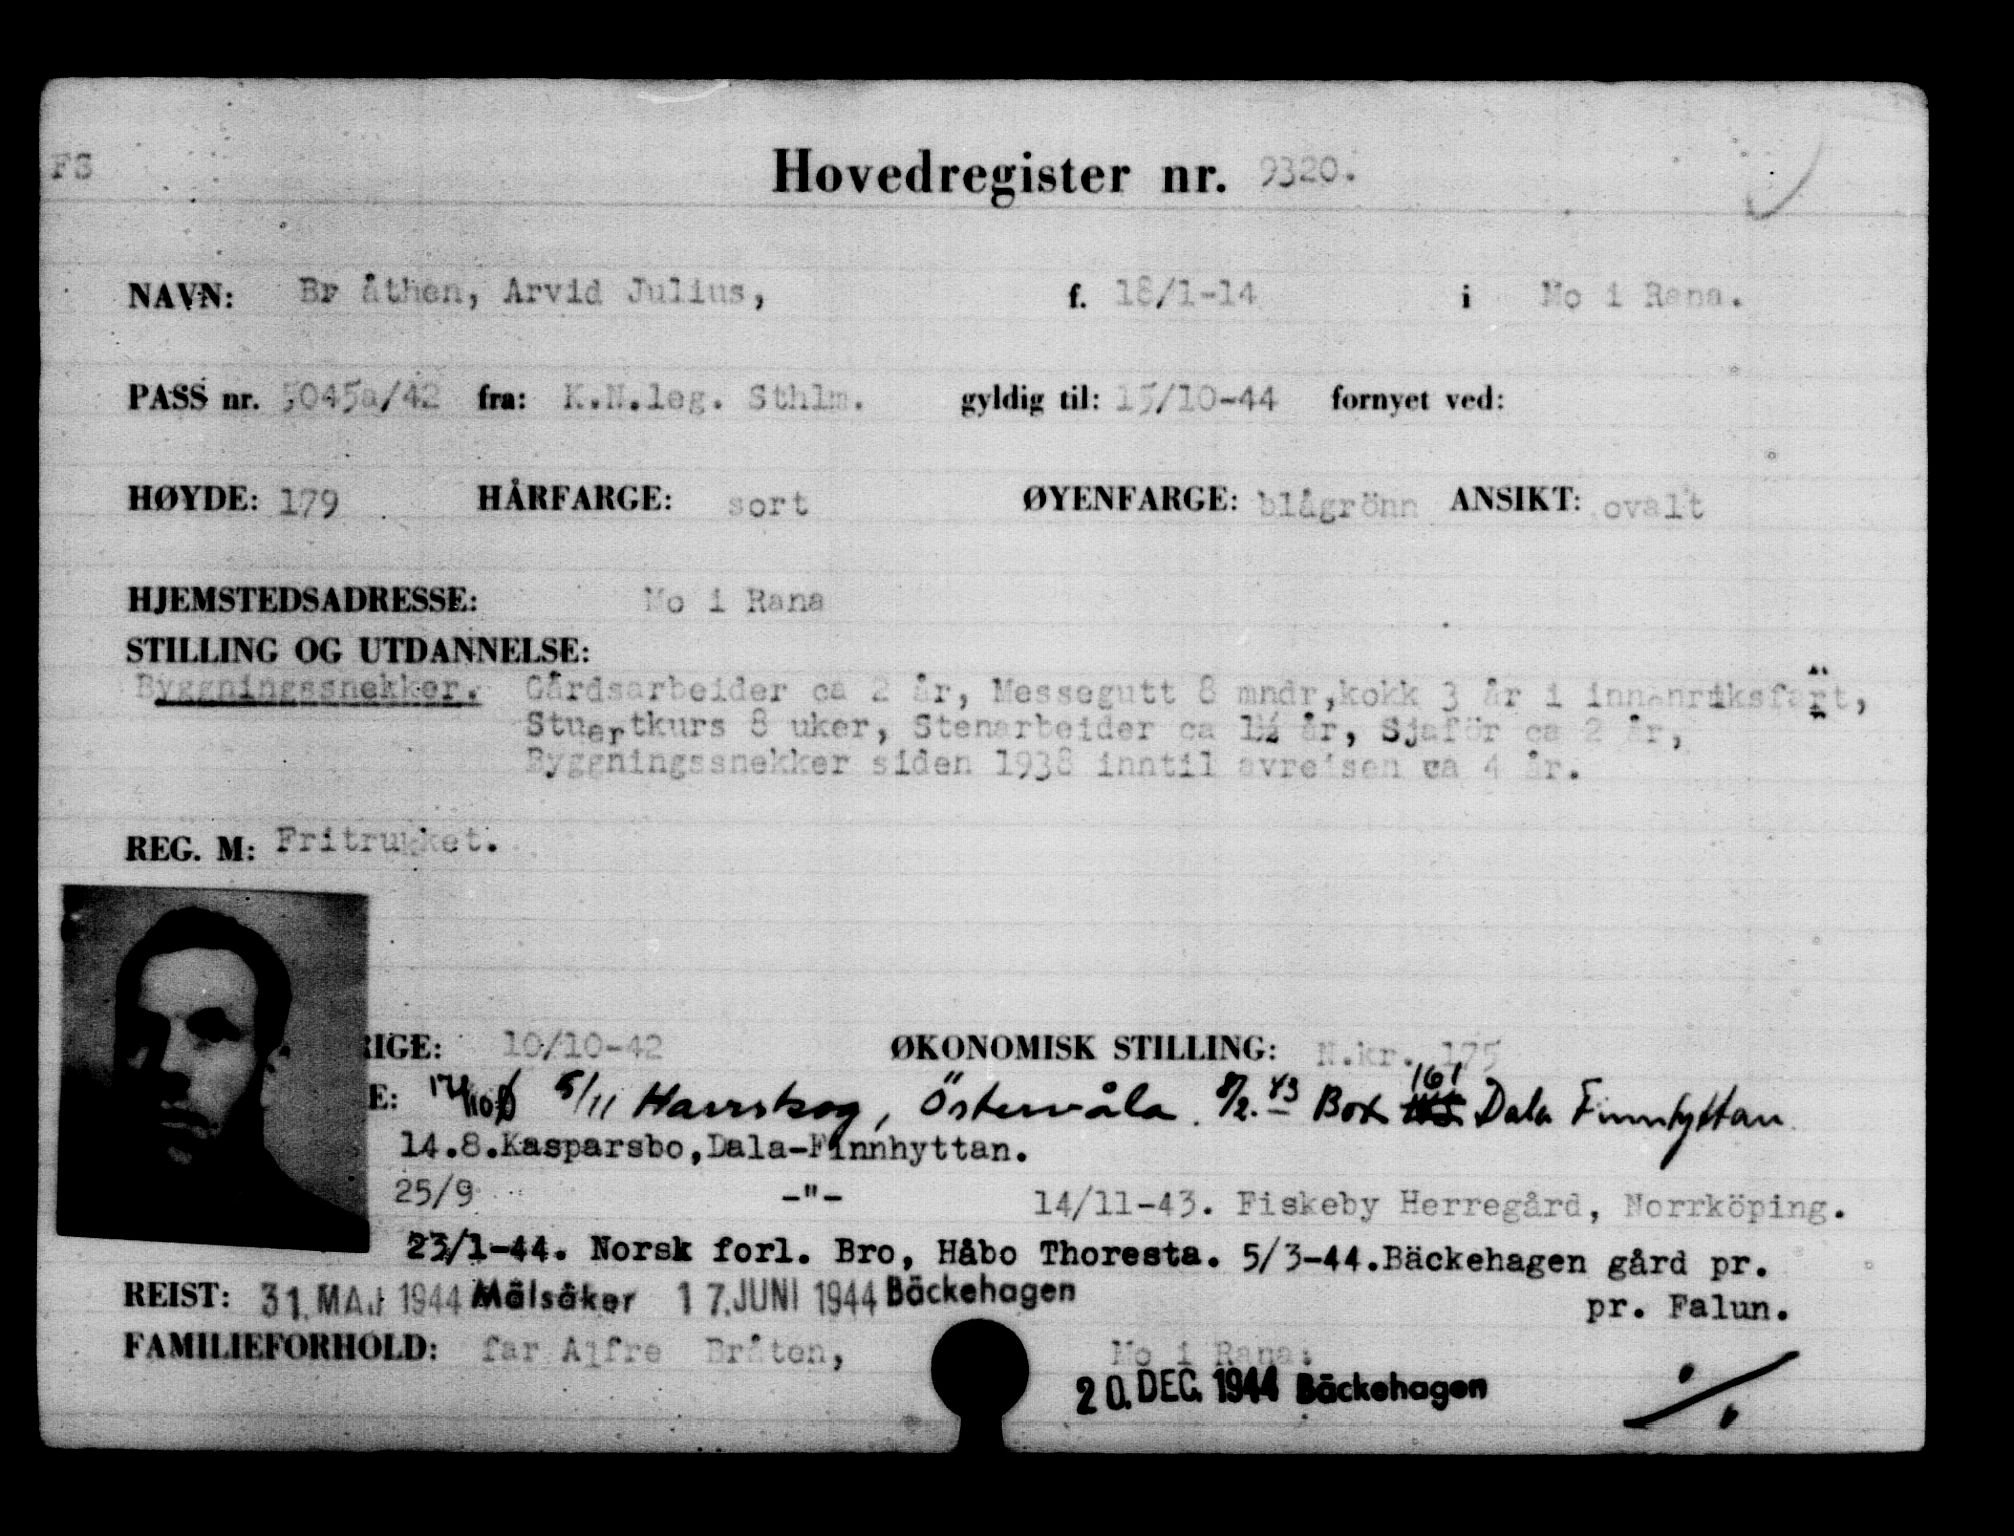 FS
Hovedregister nr. 9320.
NAVN: Br åthen, Arvid Julius, f. 18/1-14 i Mo i Rana.
PASS nr. 5045a/42 fra: K.N.leg. Sthlm. gyldig til: 15/10-44 fornyet ved:
HØYDE: 179 HÅRFARGE: sort ØYENFARGE: blågrönn ANSIKT: ovalt
HJEMSTEDSADRESSE: Mo i Rana
STILLING OG UTDANNELSE:
Byggningssnekker. Gårdsarbeider ca 2 år, Messegutt 8 mndr,kokk 3 år i innenriksfart,
Stuertkurs 8 uker, Stenarbeider ca 1½ år, Sjaför ca 2 år,
Byggningssnekker siden 1938 inntil avreisen ca 4 år.
REG. M: Fritrukket.
RIGE: 10/10-42 ØKONOMISK STILLING: N.kr. 175
E: 17/10 Ø 5/11 Harrskog, Östervåla. 8/2. 43 Box 161 Dala Finnhyttan
14.8.Kasparsbo,Dala-Finnhyttan.
25/9 -"- 14/11-43. Fiskeby Herregård, Norrköping.
23/1-44. Norsk forl. Bro, Håbo Thoresta. 5/3-44.Bäckehagen gård pr.
REIST: 31. MAJ 1944 Mälsåker 17. JUNI 1944 Bäckehagen
pr. Falun.
FAMILIEFORHOLD: far Alfre Bråten, Mo i Rana.
20. DEC. 1944 Bäckehagen